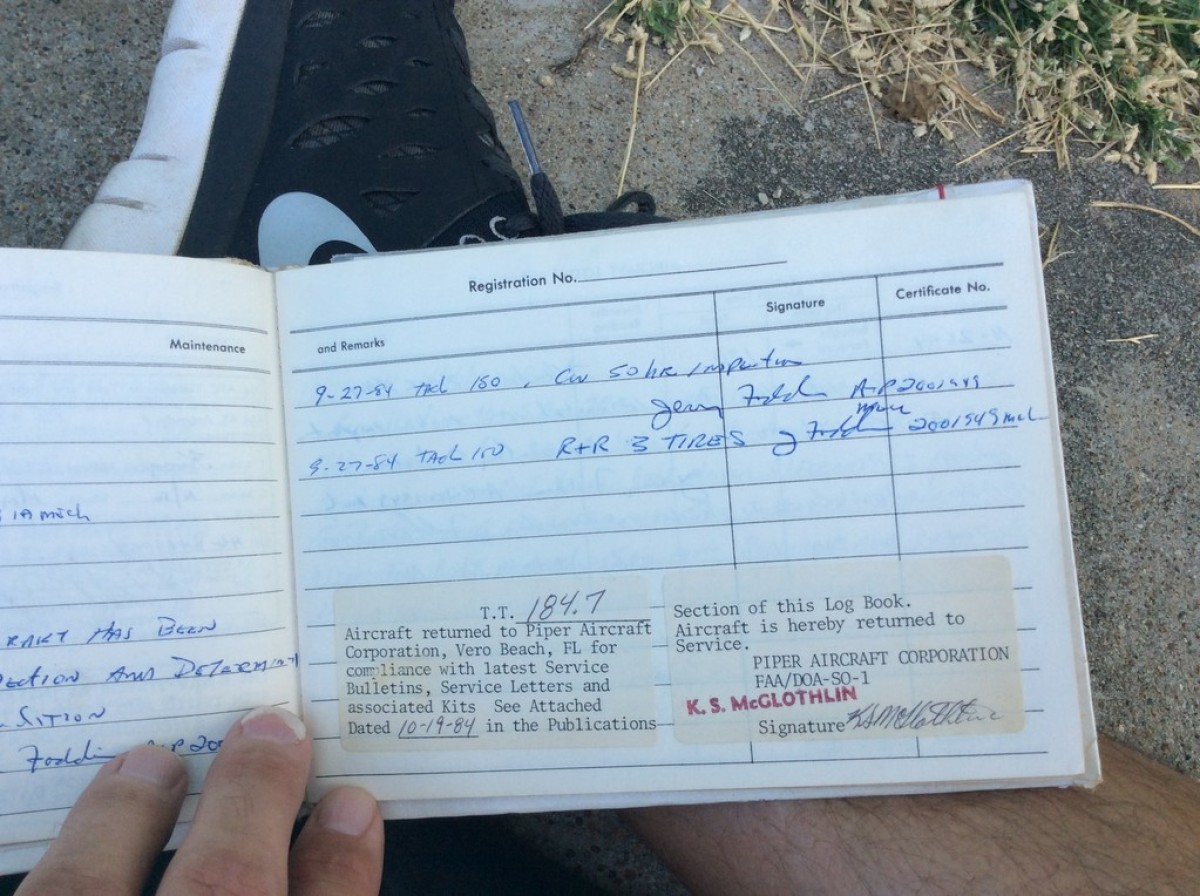 Maintenance
RAFT HAS BEEN
SITION
Registration No.
and Remarks
Signature
Certificate No.
9-27-84 TACH 150, CW 50 HR Inspection
Jerry A+P 2001949
9-27-84 TACH 150 R+R 3 TIRES 2001949
T.T. 184.7
Aircraft returned to Piper Aircraft
Corporation, Vero Beach, FL for
compliance with latest Service
Bulletins, Service Letters and
associated Kits See Attached
Dated 10-19-84 in the Publications
Section of this Log Book.
Aircraft is hereby returned to
Service.
PIPER AIRCRAFT CORPORATION
FAA/DOA-SO-1
K. S. McGLOTHLIN
Signature KSMcGlothlin